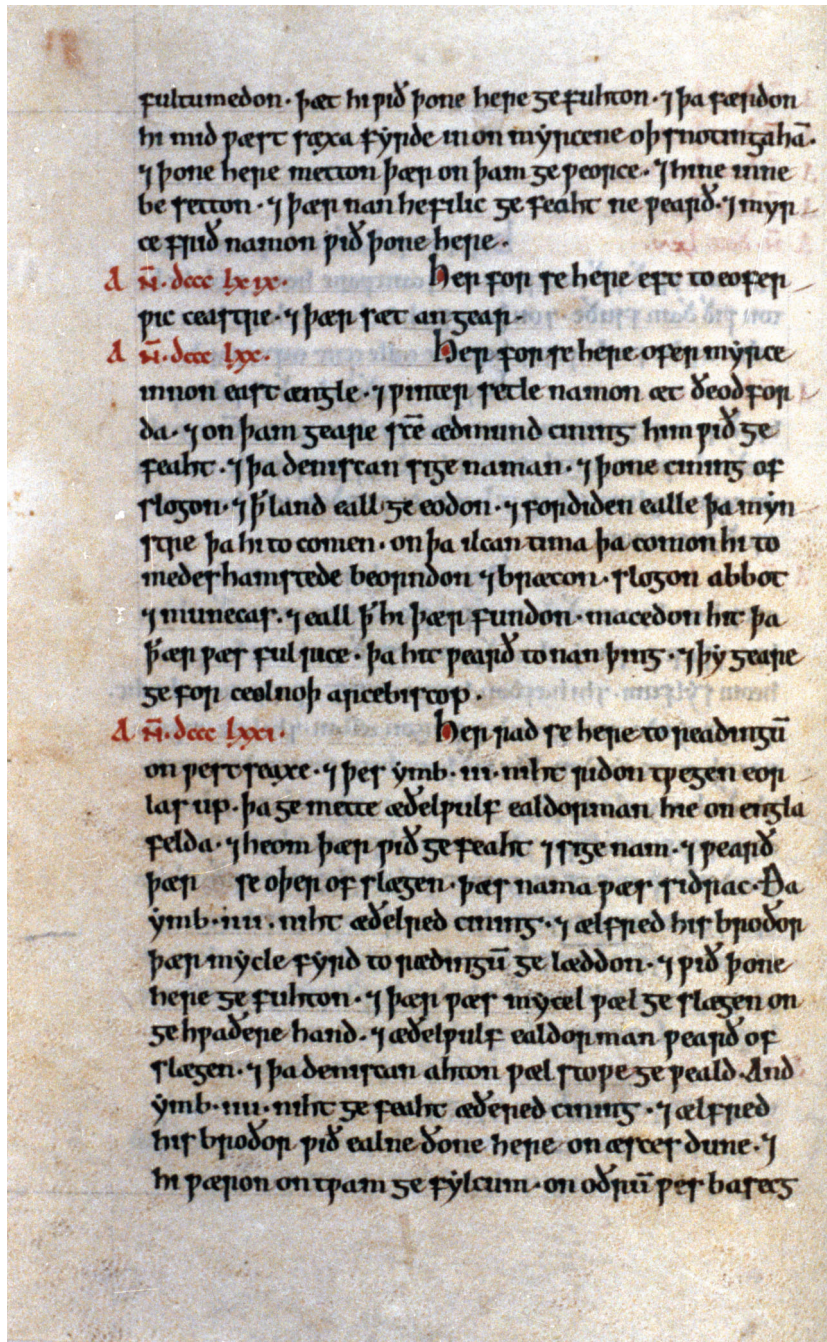 fultumedon· þæt hi ƿið þone here ge fuhton· ⁊ þa færdon
hi mid ƿæst sæxa fyrde in on myricene oþ snotingahā·
⁊ þone here metton þær on þam ge ƿeorce· ⁊ hine inne
be setton· ⁊ þær nan hefilic ge feaht ne ƿearð· ⁊ myr
ce frið namon ƿið þone here·
A N̄· dccc lxix· Her for se here eft to eofer
ƿic ceastre· ⁊ þær sæt an gear·
A N̄· dccc lxx· Her for se here ofer myrce
innon east ængle· ⁊ ƿinter setle namon æt ðeodfor
da· ⁊ on þam geare scē ædmund cining him ƿið ge
feaht· ⁊ þa deniscan sige naman· ⁊ þone cining of
slogon· ⁊ ꝥ land eall ge eodon· ⁊ fordiden ealle þa myn
stre þa hi to comen· on þa ilcan tima þa comon hi to
medeshamstede beorndon ⁊ bræcon· slogon abbot
⁊ munecas· ⁊ eall ꝥ hi þær fundon· macedon hit þa
ꝥ ær ƿæs ful rice· þa hit ƿearð to nan þing· ⁊ þy geare
ge for ceolnoþ arcebiscop·
A N̄· dccc lxxi· Her rad se here to readingū
on ƿestseaxe· ⁊ þes ymb· iii· niht ridon tƿegen eor
las up· þa ge mette æðelƿulf ealdorman hie on engla
felda· ⁊ heom þær ƿið ge feaht ⁊ sige nam· ⁊ ƿearð
þær se oþer of slægen· þæs nama ƿæs sidrac· Ða
ymb· iiii· niht æðelred cining· ⁊ ælfred his broðor
þær mycle fyrd to rædingū ge læddon· ⁊ ƿið þone
here ge fuhton· ⁊ þær ƿæs mycel ƿæl ge slægen on
ge hƿaðere hand· ⁊ æðelƿulf ealdorman ƿearð of
slægen· ⁊ þa deniscan ahton ƿæl stoƿe ge ƿeald· And
ymb· iiii· niht ge feaht æðered cining· ⁊ ælfred
his broðor ƿið ealne ðone here on æsces dune· ⁊
hi ƿæron on tƿam ge fylcum· on oðrū ƿes basecg